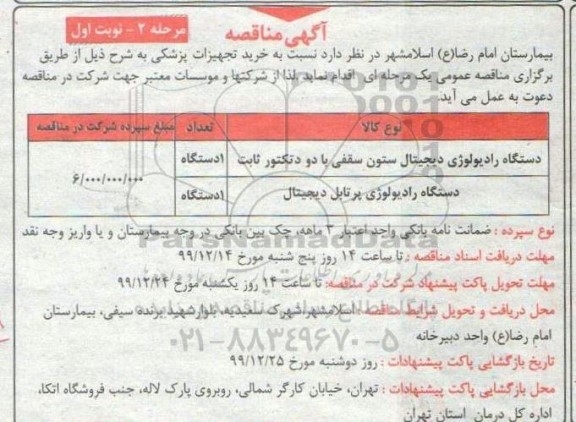 آگهی مناقصه
مرحله ۲ - نوبت اول
بیمارستان امام رضا(ع) اسلامشهر در نظر دارد نسبت به خرید تجهیزات پزشکی به شرح ذیل از طریق
برگزاری مناقصه عمومی یک مرحله ای اقدام نماید. لذا از شرکتها و موسسات معتبر جهت شرکت در مناقصه
دعوت به عمل می آید.
نوع کالا تعداد مبلغ سپرده شرکت در مناقصه
دستگاه رادیولوژی دیجیتال ستون سقفی با دو دتکتور ثابت ۱دستگاه
۶/۰۰۰/۰۰۰/۰۰۰
دستگاه رادیولوژی پرتابل دیجیتال ۱دستگاه
نوع سپرده : ضمانت نامه بانکی واجد اعتبار ۳ ماهه، چک بین بانکی در وجه بیمارستان و یا واریز وجه نقد
مهلت دریافت اسناد مناقصه : تا ساعت ۱۴ روز پنج شنبه مورخ ۹۹/۱۲/۱۴
مهلت تحویل پاکت پیشنهاد شرکت در مناقصه: تا ساعت ۱۴ روز یکشنبه مورخ ۹۹/۱۲/۲۴
محل دریافت و تحویل شرایط مناقصه : اسلامشهر،شهرک سعیدیه، بلوار شهید برنده سیفی، بیمارستان
امام رضا(ع) واحد دبیرخانه
تاریخ بازگشایی پاکت پیشنهادات : روز دوشنبه مورخ ۹۹/۱۲/۲۵
محل بازگشایی پاکت پیشنهادات : تهران، خیابان کارگر شمالی، روبروی پارک لاله، جنب فروشگاه اتکا،
اداره کل درمان استان تهران
ParsNamadData
۰۲۱-۸۸۳۴۹۶۷۰-۵